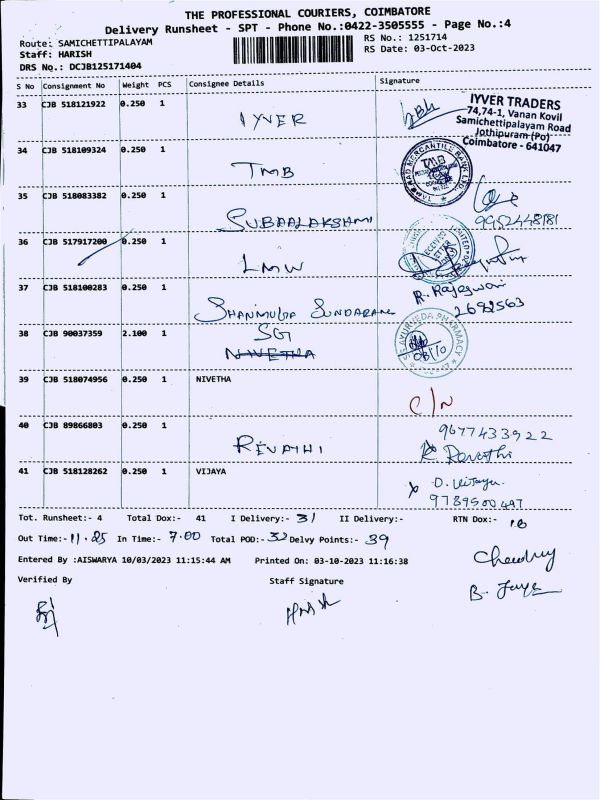 THE PROFESSIONAL COURIERS, COIMBATORE
Delivery Runsheet - SPT - Phone No.:0422-3505555 - Page No.:4
Route: SAMICHETTIPALAYAM
RS No.: 1251714
Staff: HARISH
RS Date: 03-Oct-2023
DRS No.: DCJB125171404
S No Consignment No Weight PCS Consignee Details Signature
33 CJB 518121922 0.250 1 IYVER
IYVER TRADERS
74,74-1, Vanan Kovil
Samichettipalayam Road
Jothipuram (Po)
Coimbatore - 641047
34 CJB 518109324 0.250 1 TMB
TMB
35 CJB 518083382 0.250 1 SUBAALAKSHMI
9952448181
36 CJB 517917200 0.250 1 LMW
37 CJB 518100283 0.250 1 SHANMUGA SUNDARAM
R. Rajeswari
2692563
38 CJB 90037359 2.100 1 SGI
NIVETHA
AYURVEDA PHARMACY
03/10
39 CJB 518074956 0.250 1 NIVETHA
C/N
40 CJB 89866803 0.250 1 REVATHI
9677433922
R. Revathi
41 CJB 518128262 0.250 1 VIJAYA
D. Vijaya
9789500497
Tot. Runsheet:- 4 Total Dox:- 41 I Delivery:- 31 II Delivery:- RTN Dox:- 10
Out Time:- 11.25 In Time:- 7.00 Total POD:- 32 Delvy Points:- 39
Entered By :AISWARYA 10/03/2023 11:15:44 AM Printed On: 03-10-2023 11:16:38
Verified By Staff Signature
Harish
B. Jaya